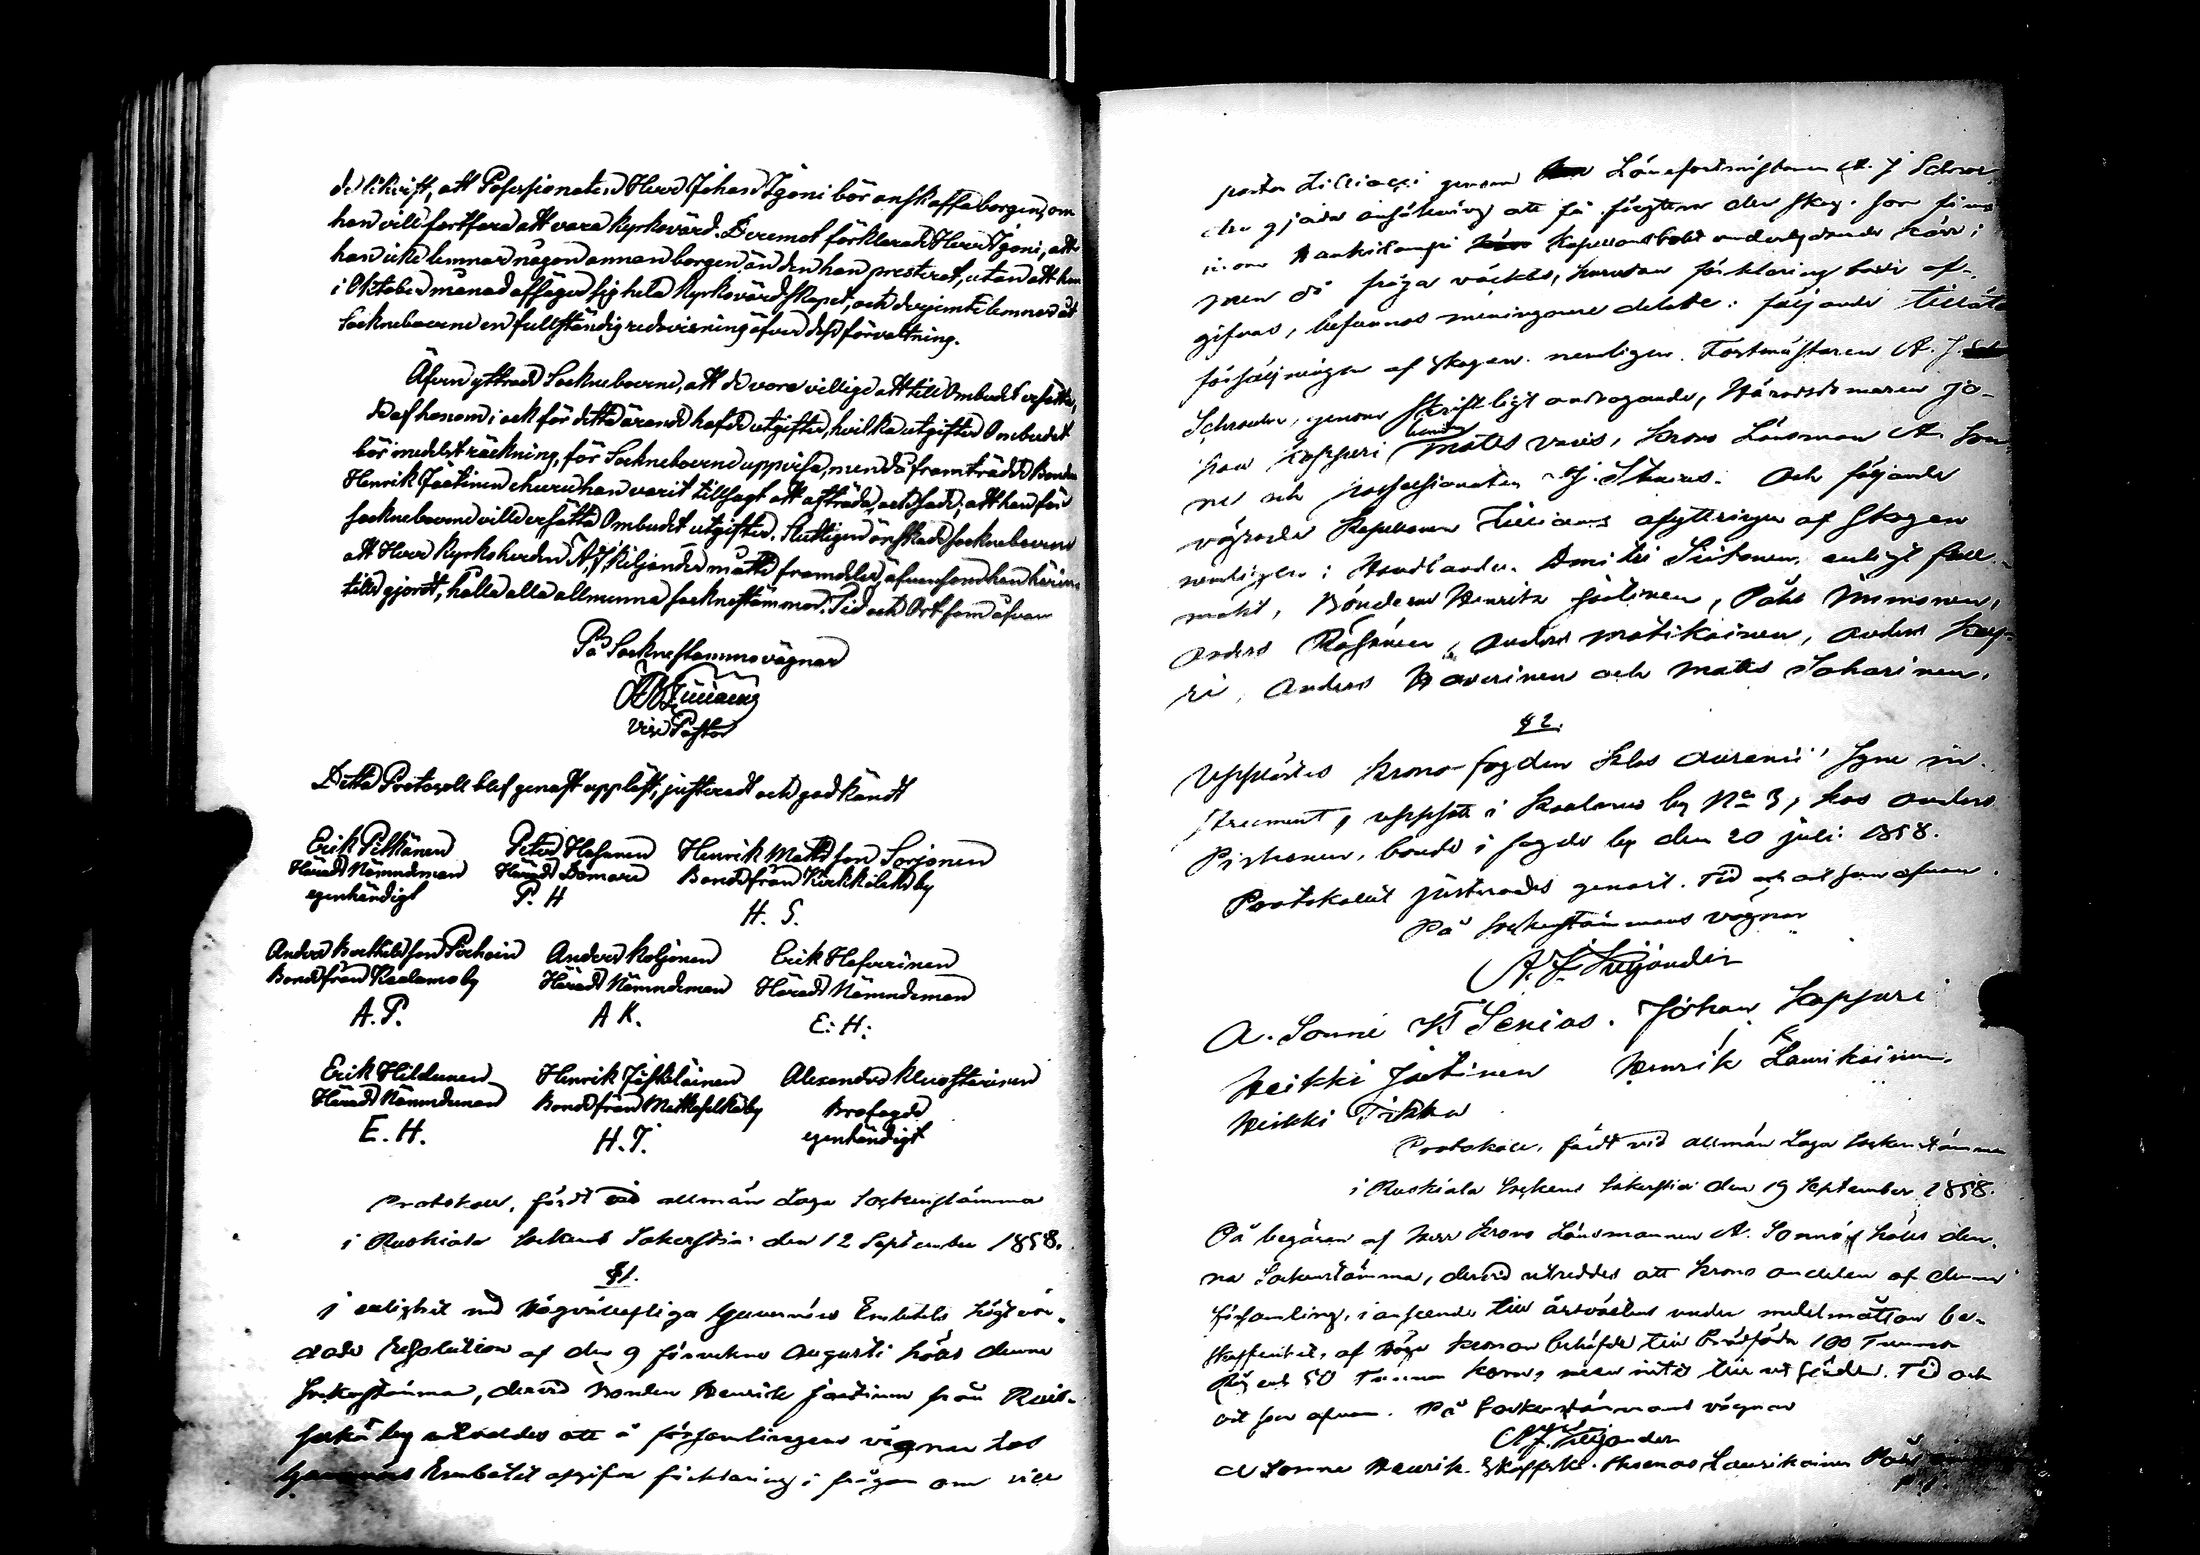 derskrift, att Possessionaten Herr Johan Igoni bör anskaffa borgen, om
han vill fortfara att vara kyrkovärd. Deremot förklarade Herr Igoni, att
han icke lemnar någon annan borgen än den han presterat, utan att han
i Oktober månad afsäger sig hela Kyrkovärdskapet, och derjemte lemnar åt
Socknboerne en fullständig redovisning öfver dess förvaltning.
Äfven yttrade Socknboerne, att de voro villige att till Ombudet ersätta,
de af honom i och för detta ärende hafde utgifter, hvilka utgifter Ombudet
bör medelst räckning, för Socknboerne uppvisa, men då framträdde Bonden
Henrik Jäätinen ehuru han varit tillsagt att afträda, och sade; att han för
socknboerne ville ersätta Ombudet utgifter. Slutligen önskade socknboerne
att Herr Kyrkoherden A. J. Kiljander måtte framdeles, äfvensom han härin-
tills gjordt, hålla alla allmänna socknestämmor. Tid och Ort som ofvan
På Socknestämmovägnar
Vice Pastor
Detta Protocoll blef genast uppläst, justeradt och godkändt
Erik Pitkänen Peter Hasanen Henrik Mattsson Sorjonen
Härads Nämndeman Härads Domare Bonde från Kirkkolaks by
egenhändigt P. H H. S.
Anders Anders Koljonen Erik
Bonde från Kaalamo by Härads Nämndeman Härads Nämndeman
A. P. A K. E: H:
Erik Hildunen Henrik Jäskeläinen Alexander
Härads Nämndeman Bonde från Matkaselkä by Brofogde
E. H. H. J. egenhändigt
Protokoll, fördt vid allmän Laga Sockenstämma
i Ruskiala Sockens Sakerstia den 12 September 1858.
§ 1.
I enlighet med Högvälloflige Guvernörs Embetets högtvör-
dade Resolution af den 9 förvekne Augusti hölls denne
Sockenstämma, dervid Bonden Henrik Jäätinen från Ruis-
selkä by utvaldes att å församlingens vägnar hos
Guvernörs Embetet afgifva förklaring i frågan om vice
pastor Lilliacus genom Länsforstmästaren A. J Schroe-
der gjorda ansökning att få föryttra den skog, som finns
inom Haukilampi Kapellansbolet underlydande kärr;
men då fråga väcktes, hurudan förklaring borde af-
gifvas, befunnos meningarne delade: följande tilläto
försäljningen af skogen. nemligen. Forstmästaren A. J.
Schroeder, genom skriftligt andragande, Häradsdomaren Jo-
han Kapperi bonden Matts Varis, krono Länsman A. Son-
ne och possessionaten Och följande
vägrade Kapellanen Lilliacus afyttringen af Skogen
nemligen: Handlanden Dmitri enligt full-
makt, Bönderne Henrik Jäätinen, Påhl Immonen,
Anders Räsänen, Anders Matikainen, Anders Kap-
ri, Anders Haverinen och Matts Saharinen.
§ 2.
Upplästes Krono-fogden Klas Aurenii' Syne in-
strument, uppsatt i Kaalamo by No 3, hos Anders
Pirhonen, bonde i sagde by den 20 juli 1858.
Protokollet justerades genast. Tid och ort som ofvan.
På Sockenstämmans vägnar
A. J. Kiljander
A. Sonne Johan Kapperi
Heikki Jäätinen Henrik Laurikainen.
Heikki Tikka
Protokoll, fördt vid allmän Laga Sockenstämma
i Ruskiala Sockens Sakerstia den 19 September 1858.
På begäran af Herr Krono Länsmannen A. Sonne hölls den-
na Sockenstämma, dervid utreddes att krono andelen af denne
församling, i anseende till årsväxtens under medelmåttan be-
skaffenhet, af höga kronan behöfde till brödföda 100 Tunnor
Råg och 50 Tunnor korn, men intet till utsäden. Tid och
ort som ofvan. På Sockenstämmans vägnar
A. J. Kiljander
A Sonne Henrik Laurikainen